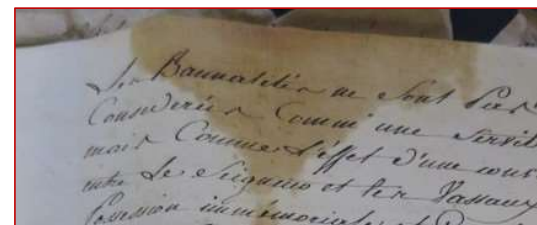 Les Bannalités ne Sont pas
Considerées Comme une Servit
mais Comme L'effet D'une conv
entre Le Seigneur et Les Vassaux
Possession immémoriale et